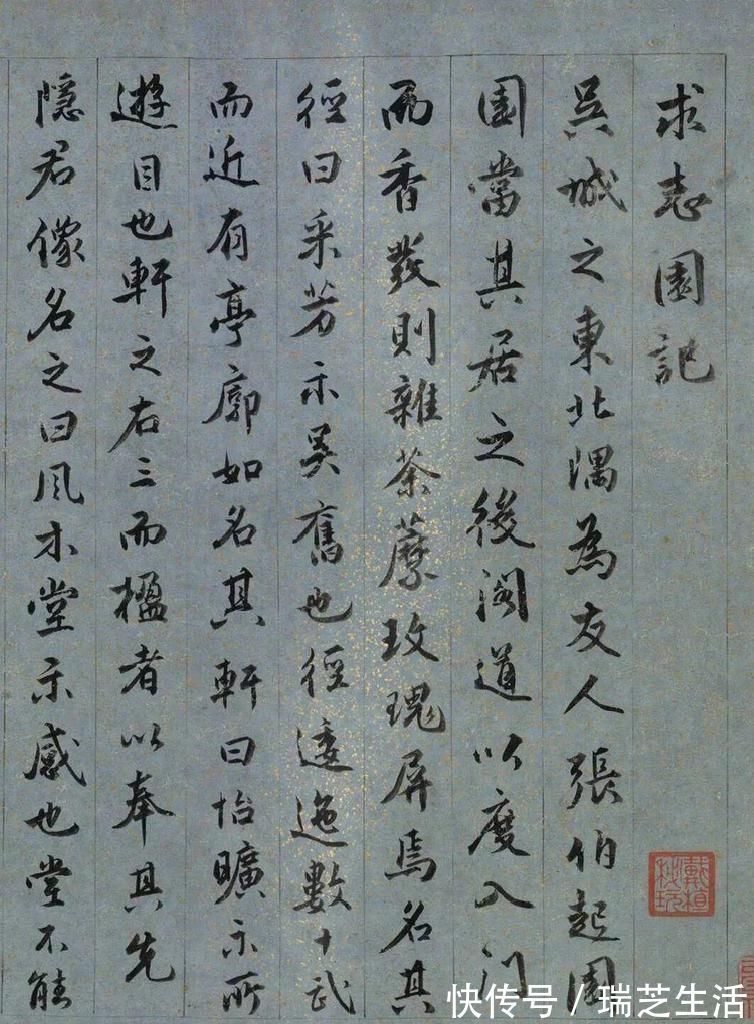 求志園記
吳城之東北隅為友人張伯起園
園當其居之後閣道以度入門
而香發則雜荼蘼玫瑰屏焉名其
徑曰采芳示吳舊也徑逶迤數十武
而近有亭廓如名其軒曰怡曠示所
遊目也軒之右三而楹者以奉其先
隱君像名之曰風木堂示感也堂不能
快传号/瑞芝生活